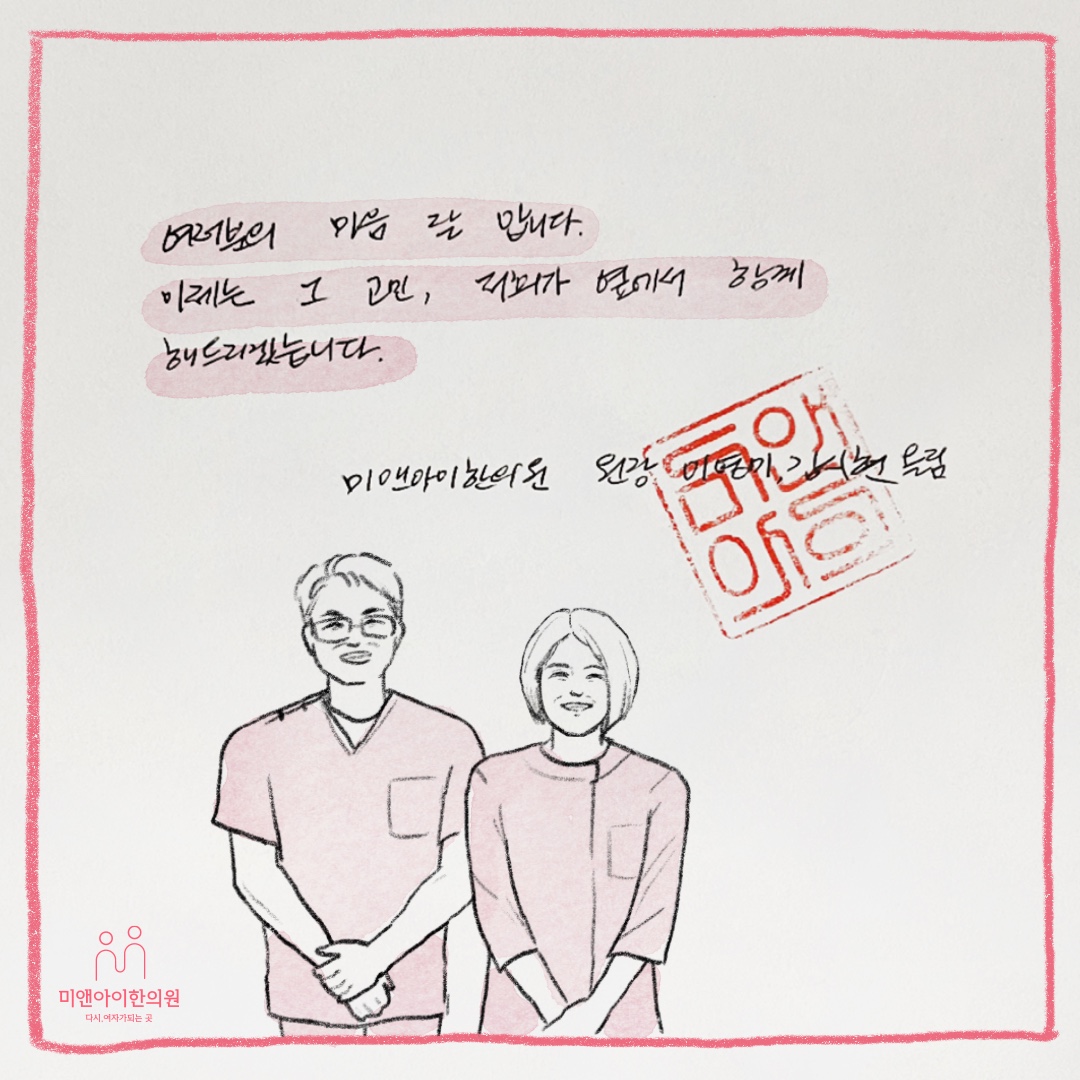 여러분의 마음 잘 압니다.
이제는 그 고민, 저희가 옆에서 함께
해드리겠습니다.
미앤아이한의원 원장 이연미, 강시현 올림
미앤
아이
미앤아이한의원
다시.여자가되는 곳